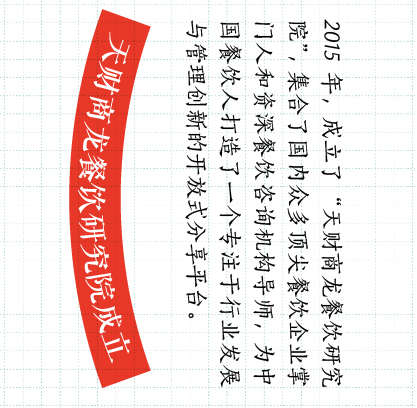 天财商龙餐饮研究院成立
2015 年，成立了“天财商龙餐饮研究
院”，集合了国内众多顶尖餐饮企业掌
门人和资深餐饮咨询机构导师，为中
国餐饮人打造了一个专注于行业发展
与管理创新的开放式分享平台。